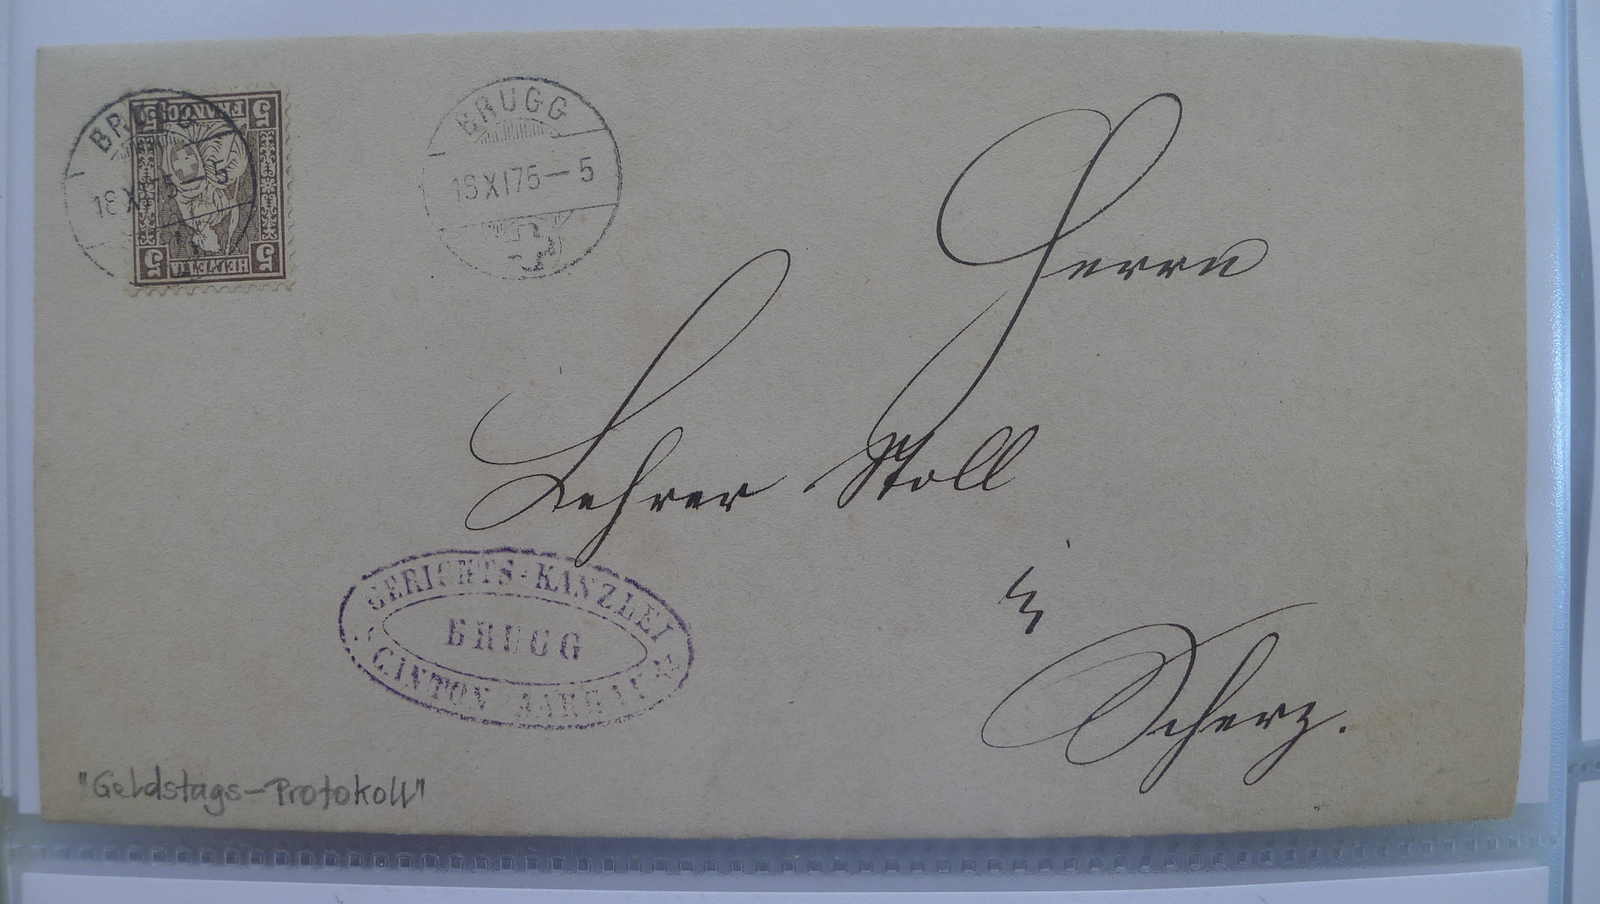 5 FRANCO 5
HELVETIA
5 5
BRUGG
BRUGG
18 XI 75-5
Herrn
Lehrer Stoll
in
Scherz.
GERICHTS-KANZLEI
BRUGG
CANTON AARGAU
"Geldstags-Protokoll"